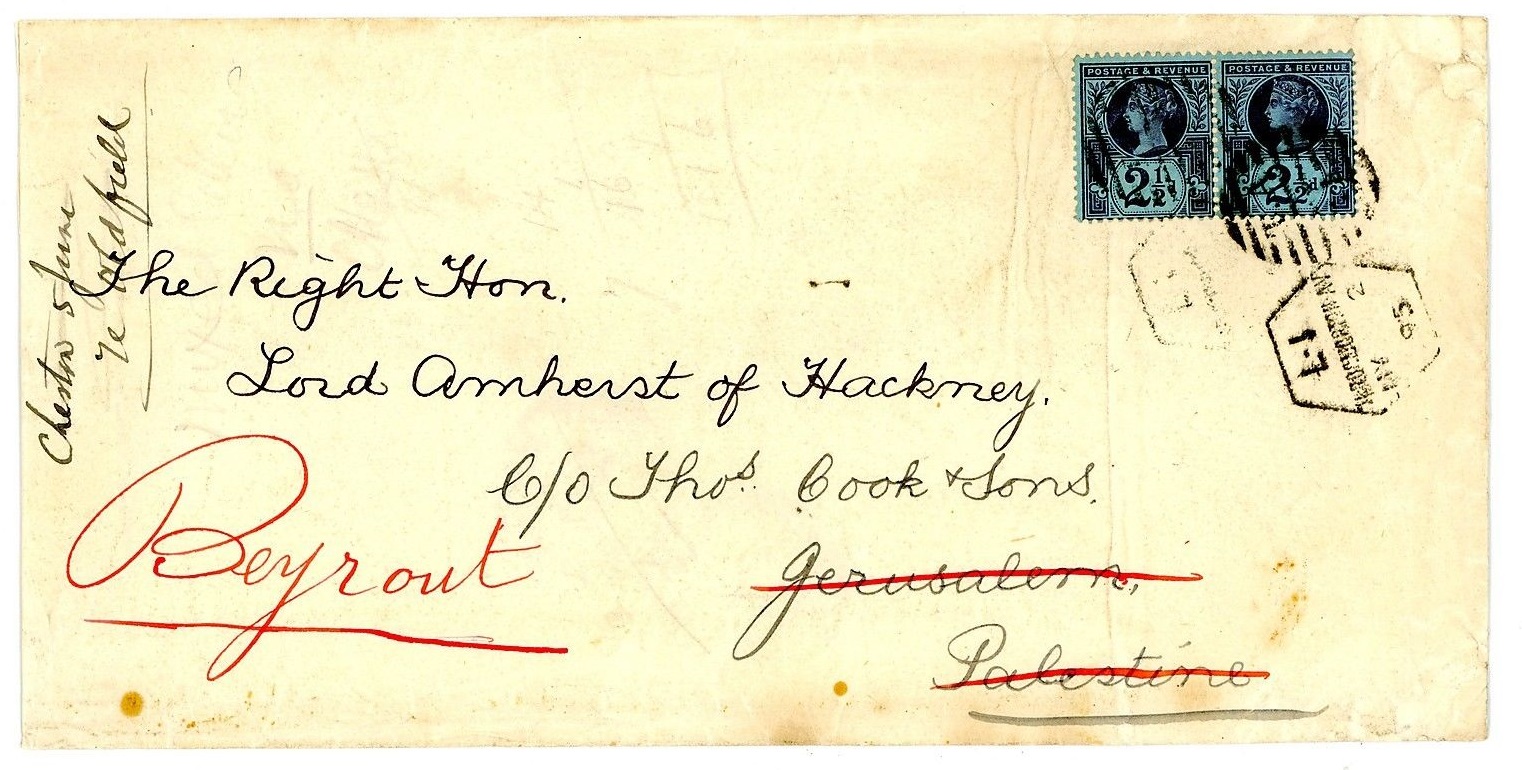 POSTAGE & REVENUE POSTAGE & REVENUE
2½ 2½d
5 June
re Oldfield
The Right Hon.
Lord Amherst of Hackney.
C/o Thos. Cook & Sons.
Jerusalem,
Palestine
Beyrout
L1
L1
MY
2
95